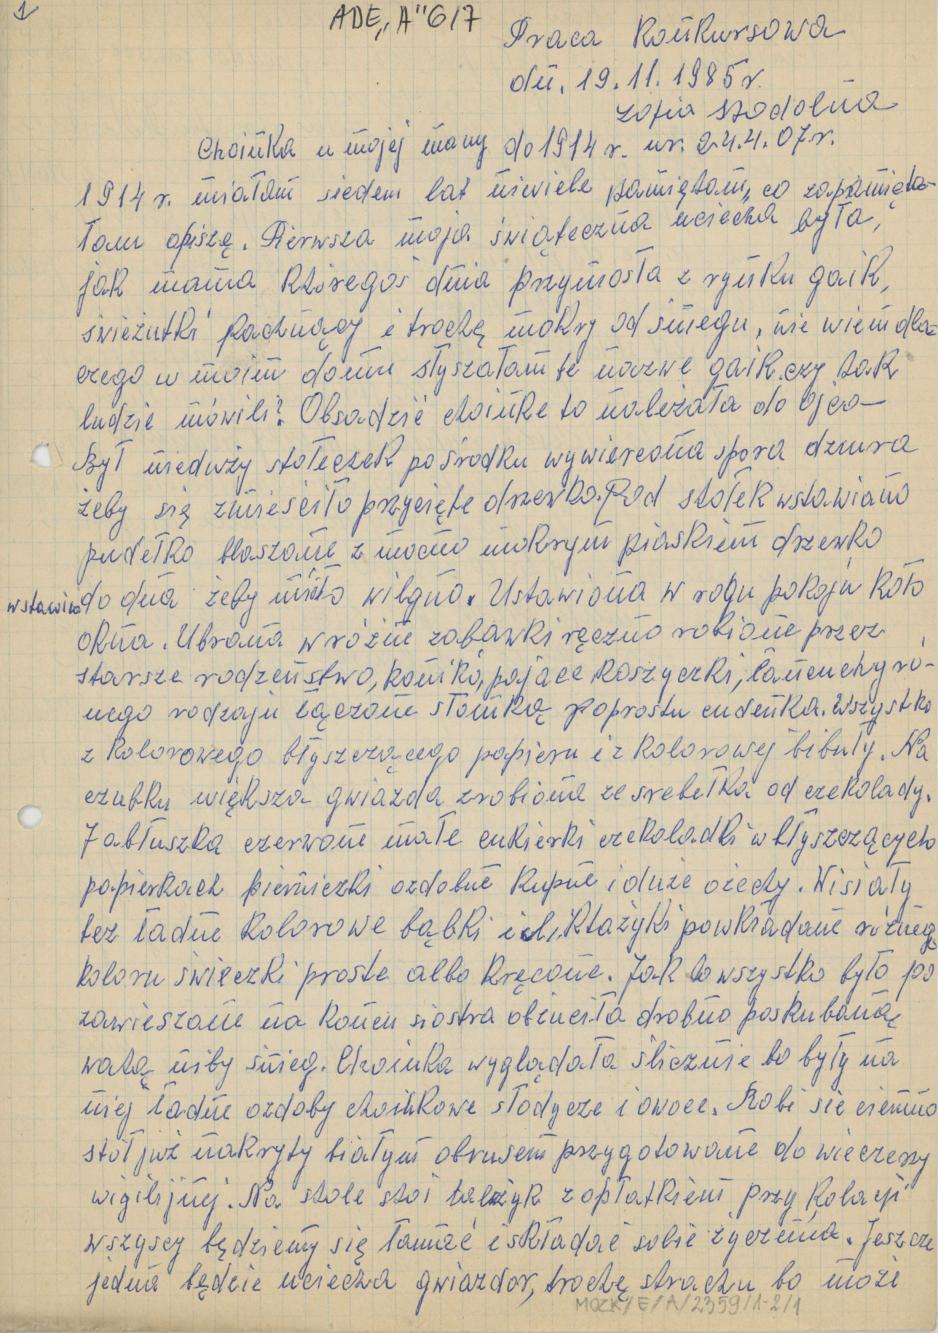 1
ADE „A" 6/7
Praca Konkursowa
dn. 19.11.1985r.
Zofia Stodolna
Choinka u mojej mamy do 1914 r. ur. 24.4.07r.
1914 r. miałam siedem lat niewiele pamiętam, co zapamięta-
łam opiszę. Pierwsza moja świąteczna uciecha była,
jak mama któregoś dnia przyniosła z rynku gaik,
świeżutki pachnący i trochę mokry od śniegu, nie wiem dla-
czego w moim domu słyszałam te nazwe gaik czy tak
ludzie mówili? Obsadzić choinke to należała do ojca
Był nieduży stołeczek pośrodku wywiercona spora dziura
żeby się zmieściło przycięte drzewko. Pod stołek wstawiano
pudełko blaszane z mocno mokrym piaskiem drzewko
wstawiono do dna żeby miało wilgno. Ustawiona w rogu pokoju koło
okna. Ubrana w różne zabawki ręczno robione przez
starsze rodzeństwo, koniki, pajace koszyczki, łańcuchy ró-
nego rodzaju łączone słomką poprostu cudeńka. Wszystko
z kolorowego błyszczącego papieru i z kolorowej bibuły. Na
czubku większa gwiazda zrobiona ze srebełka od czekolady.
Jabłuszka czerwone małe cukierki czekoladki w błyszczących
papierkach pierniczki ozdobne kupne i duże ożechy. Wisiały
też ładne kolorowe bąbki i klażyki powkładane różnego
koloru świeczki proste albo kręcone. Jak to wszystko było po
zawieszane na końcu siostra obżuciła drobno poskubaną
watą niby śnieg. Choinka wyglądała ślicznie bo były na
niej ładne ozdoby choinkowe słodycze i owoce. Robi sie ciemno
stół już nakryty białym obrusem przygotowane do wieczeży
wigilijnej. Na stole stoi tależyk z opłatkiem przy kolacji
wszyscy będziemy się łamać i składać sobie życzenia. Jeszcze
jedna będzie uciecha gwiazdor, trochę strachu bo może
MOZK/E/A/2359/1-2/1